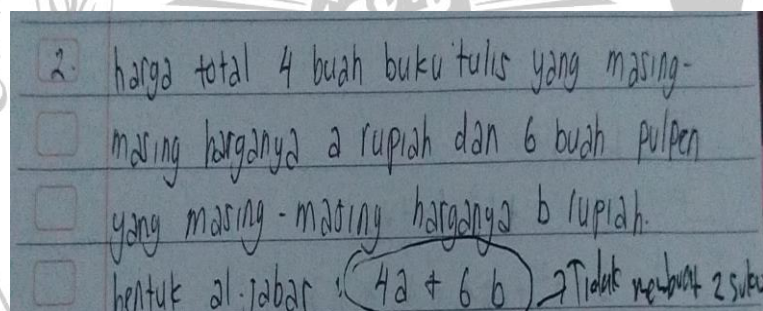 2. harga total 4 buah buku tulis yang masing-
masing harganya a rupiah dan 6 buah pulpen
yang masing-masing harganya b rupiah.
bentuk al-jabar : 4a + 6b → Tidak membuat 2 suku